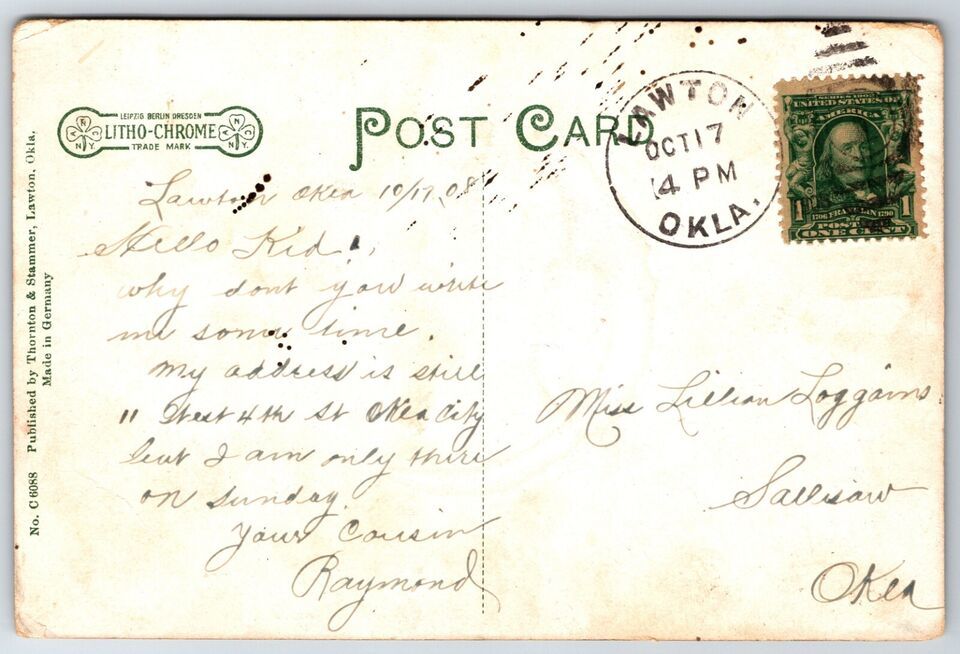 LEIPZIG BERLIN DRESDEN
LITHO-CHROME
TRADE MARK
A N C N.Y.
A N C N.Y.
POST CARD
LAWTON
OCT 17
4 PM
OKLA.
SERIES 1902
UNITED STATES OF
AMERICA
1 1706 FRANKLIN 1790 1
POSTAGE
ONE CENT
No. C 6088 Published by Thornton & Stammer, Lawton, Okla.
Made in Germany
Lawton Okla 10/17, 08
Hello Kid!,
why dont you write
me some time.
My address is still
11 West 4th St Okla City
but I am only there
on Sunday.
Your Cousin
Raymond
Miss Lillian Loggains
Sallisaw
Okla